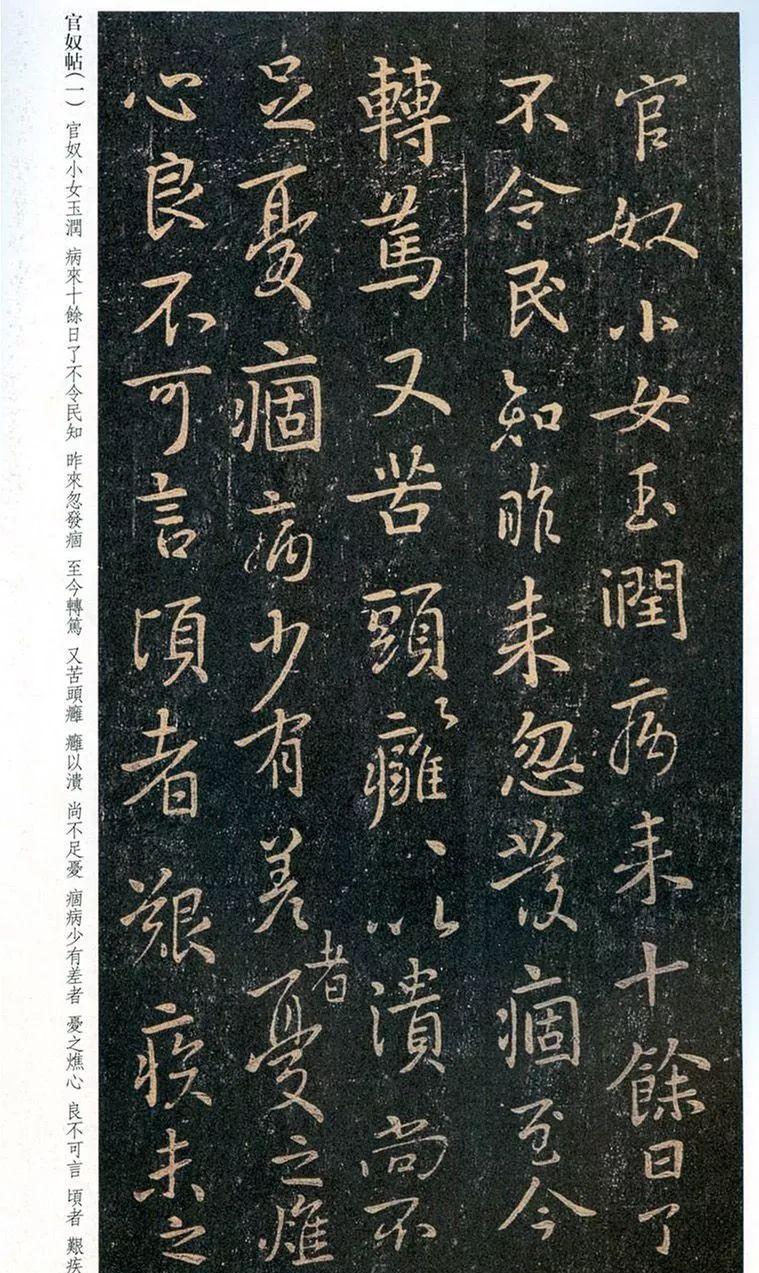 官奴小女玉潤病来十餘日了
不令民知昨来忽發痼至今
轉篤又苦頭癰〻以潰尚不
足憂痼病少有差者憂之燋
心良不可言頃者艱疾未之
官奴帖(一) 官奴小女玉潤 病來十餘日了不令民知 昨來忽發痼 至今轉篤 又苦頭癰 癰以潰 尚不足憂 痼病少有差者 憂之燋心 良不可言 頃者 艱疾